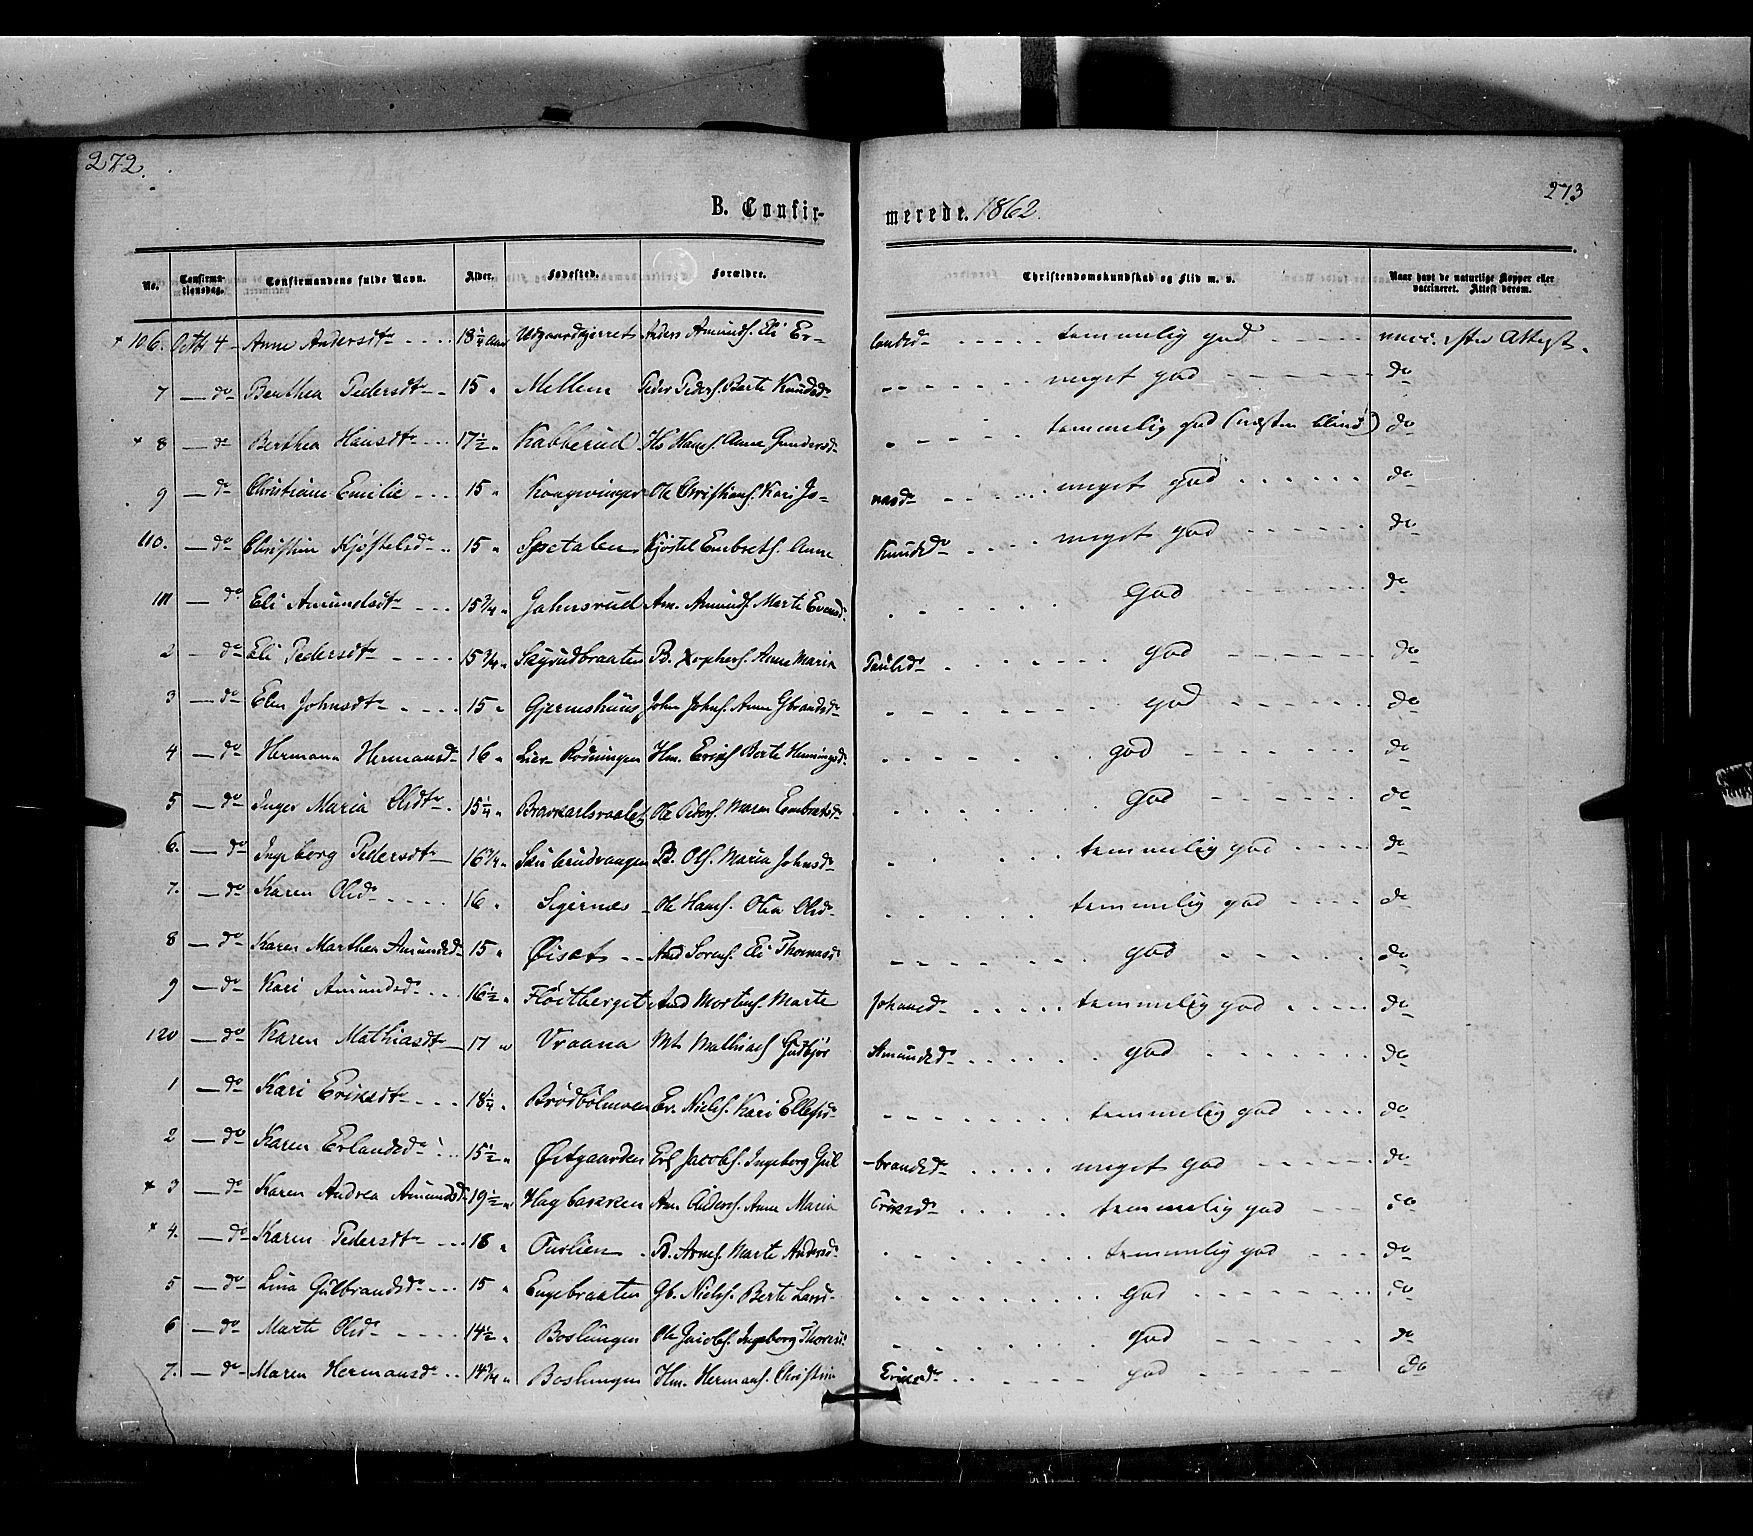 272.
273
B. Confir-
merede. 1862.
No. Confirmationsdag. Confirmandens fulde Navn. Alder. Fødested. Forældre. Christendomskundskab og Flid m. v. Naar havt de naturlige Kopper eller vaccineret. Attest derom.
+ 106. Octb 4 - Anne Andersdtr 18 1/4 Aar Anders Amunds. Eli Er- landsdr temmelig god vacc. efter Attest.
7 — do Benthea Pedersdtr 15 " Mellem Peder Peders. Berte Knudsdr meget god do
+ 8 — do Berthea Hansdtr 17 1/2 " Kabberud Hs Hans. Anne Gundersdr temmelig god (næsten blind) do
9 — do Christiane Emilie 15 " Kongsvinger Ole Christians. Kari Jo- nasdr meget god do
110. — do Christine Kjøstelsdr 15 " Spetalen Kjøstel Embrets. Anne Knudsdr meget god do
111 — do Eli Amundsdtr 15 3/4 " Jahnsrud Am. Amunds. Marte Evensdr god do
2 — do Eli Pedersdtr 15 3/4 " Skyrudbraaten P. Xophers. Anne Maria Paulsdr god do
3 — do Elen Johnsdtr 15 " Gjermshuus John Johns. Anne Gbrandsdr god do
4 — do Hermana Hermansdr 16 " Lier Rødningen Hm. Eriks. Berte Henningsdr god do
5 — do Inger Maria Olsdtr 15 1/4 " Ole Peders. Maren Embretsdr god do
6. — do Ingeborg Pedersdtr 16 3/4 " P. Ols. Maria Johnsdr temmelig god do
7. — do Karen Olsdr 16 " Sigernæs Ole Hans. Olia Olsdr temmelig god do
8 — do Karen Marthea Amundsdr 15 " Øiset Amd Sørens. Eli Thomasdr god do
9 — do Kari Amundsdr 16 1/2 " Fløitberget Amd Mortens. Marte Johansdr temmelig god do
120 — do Karen Mathiasdtr 17 " Vraana Mt. Mathias. Gudbjør Amundsdr god do
1 — do Kari Eriksdtr 18 1/4 " Brødbølmoen Er. Niels. Kari Ellefsdr temmelig god do
2 — do Karen Erlandsdr 15 1/2 " Østgaarden Erl. Jacobs. Ingeborg Gul -brandsdr meget god do
+ 3 — do Karen Andrea Amundsdr 19 1/2 " Haybakken Am. Anders. Anne Maria Eriksdr temmelig god do
+ 4. — do Karen Pedersdtr 18 " Furlien P. Arnes. Marte Andersdr temmelig god do
5 — do Lina Gulbrandsdr 15 " Engebraaten Gb. Niels. Berte Larsd- god do
6 — do Marte Olsdr 14 1/2 " Boslungen Ole Jacobs. Ingeborg Thoresdr god do
7. — do Maren Hermansdr 14 3/4 " Boslungen Hm. Hermans. Christine Eriksdr god do